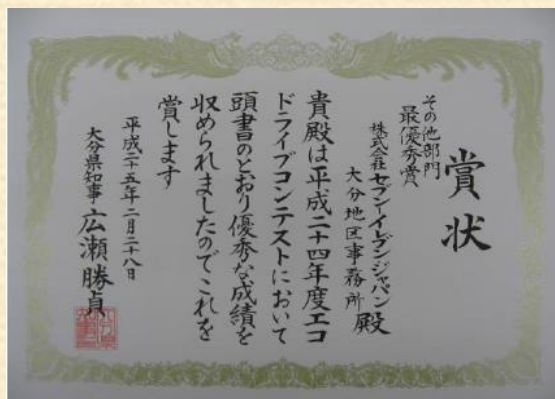 賞状
その他部門
最優秀賞
株式会社セブン-イレブン・ジャパン
大分地区事務所 殿
貴殿は平成二十四年度エコ
ドライブコンテストにおいて
頭書のとおり優秀な成績を
収められましたのでこれを
賞します
平成二十五年二月二十八日
大分県知事 広瀬勝貞